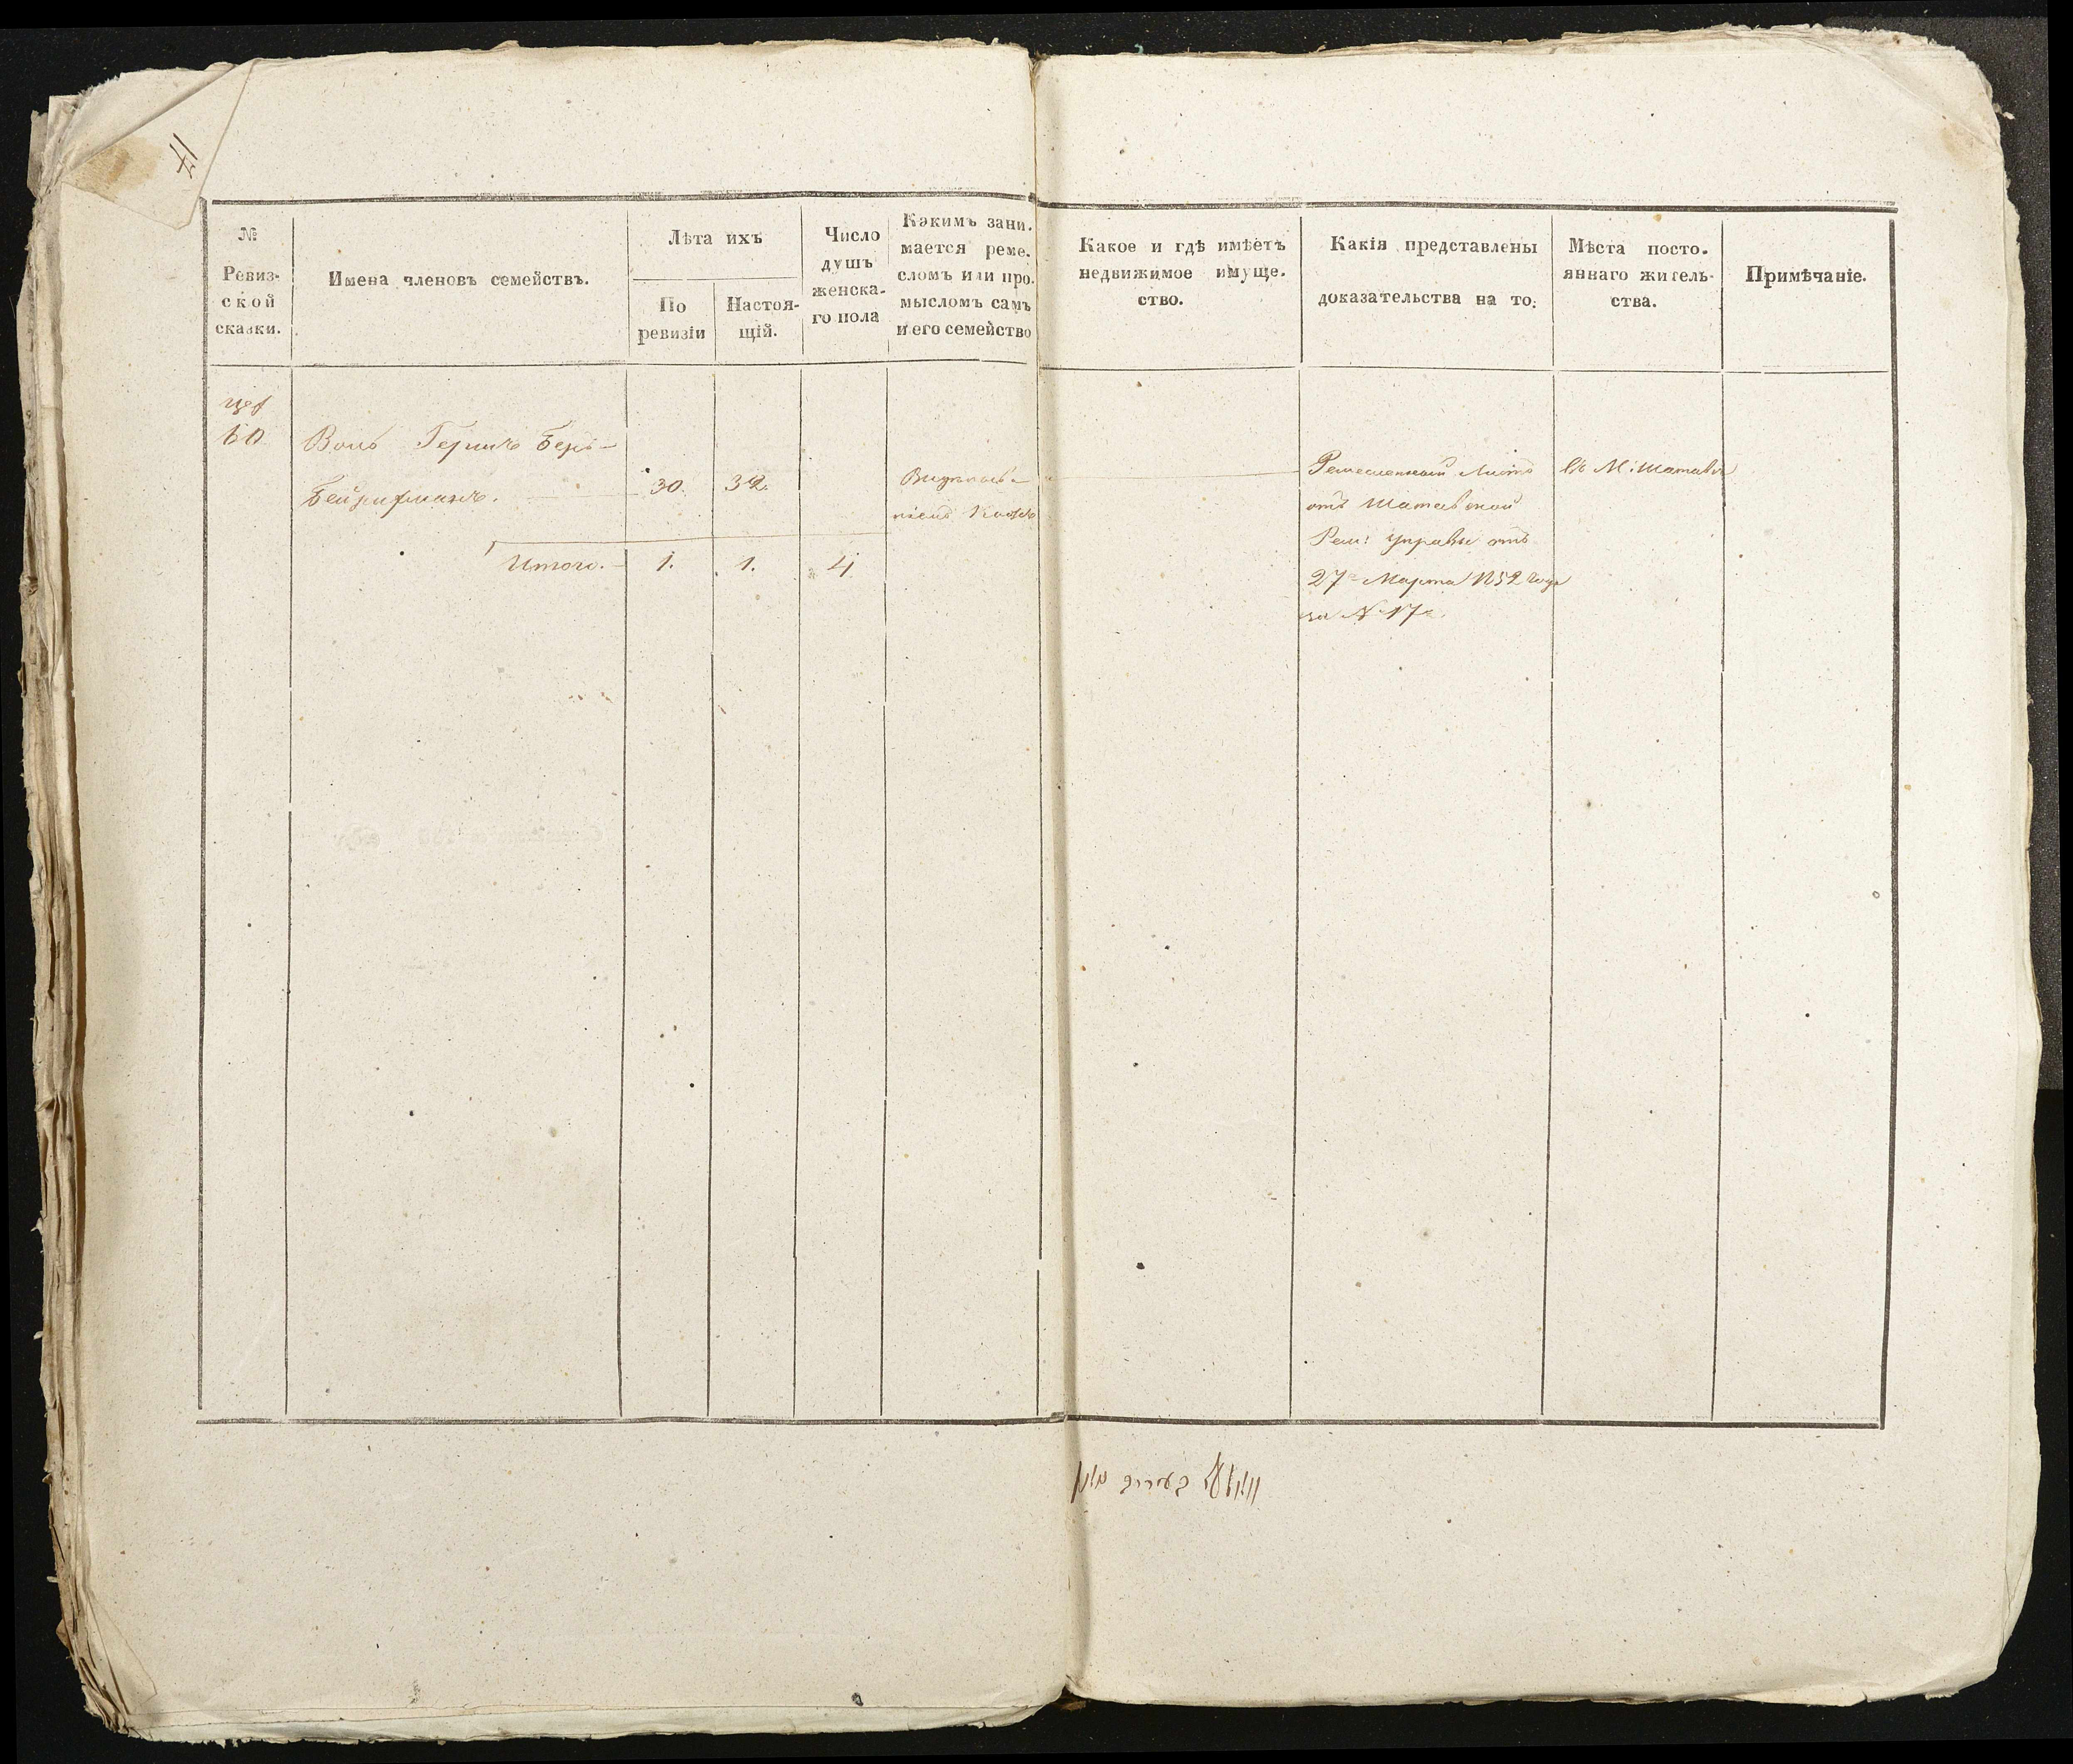 41
№
Ревиз-
ской
сказки.
Имена членовъ семействъ.
Лѣта ихъ
По
ревизіи
Настоя-
щій.
Число
душъ
женска-
го пола
Какимъ зани-
мается реме-
сломъ или про-
мысломъ самъ
и его семейство
Какое и гдѣ имѣетъ
недвижимое имуще-
ство.
Какія представлены
доказательства на то.
Мѣста посто-
яннаго житель-
ства.
Примѣчаніе.
60
Воль Гершъ Беръ-
30. 32.
Ремесленный Листъ
отъ Шатавской
Рем: управы отъ
27 Марта 1852 года
за № 17
въ М: Шатавѣ
Итого. 1. 1. 4